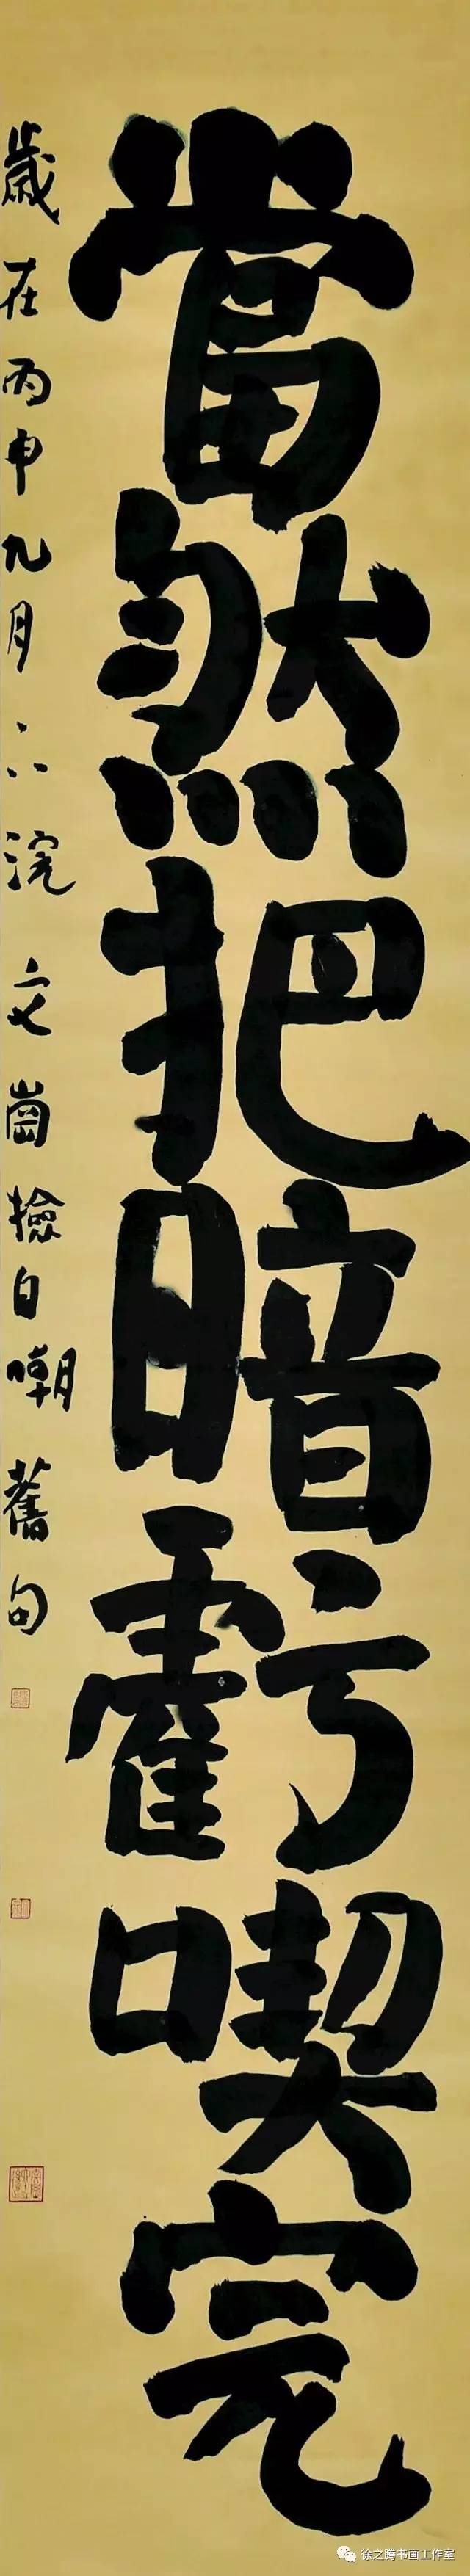 當然把暗虧喫完
歲在丙申九月下浣 文崗撿自嘲舊句
徐之腾书画工作室